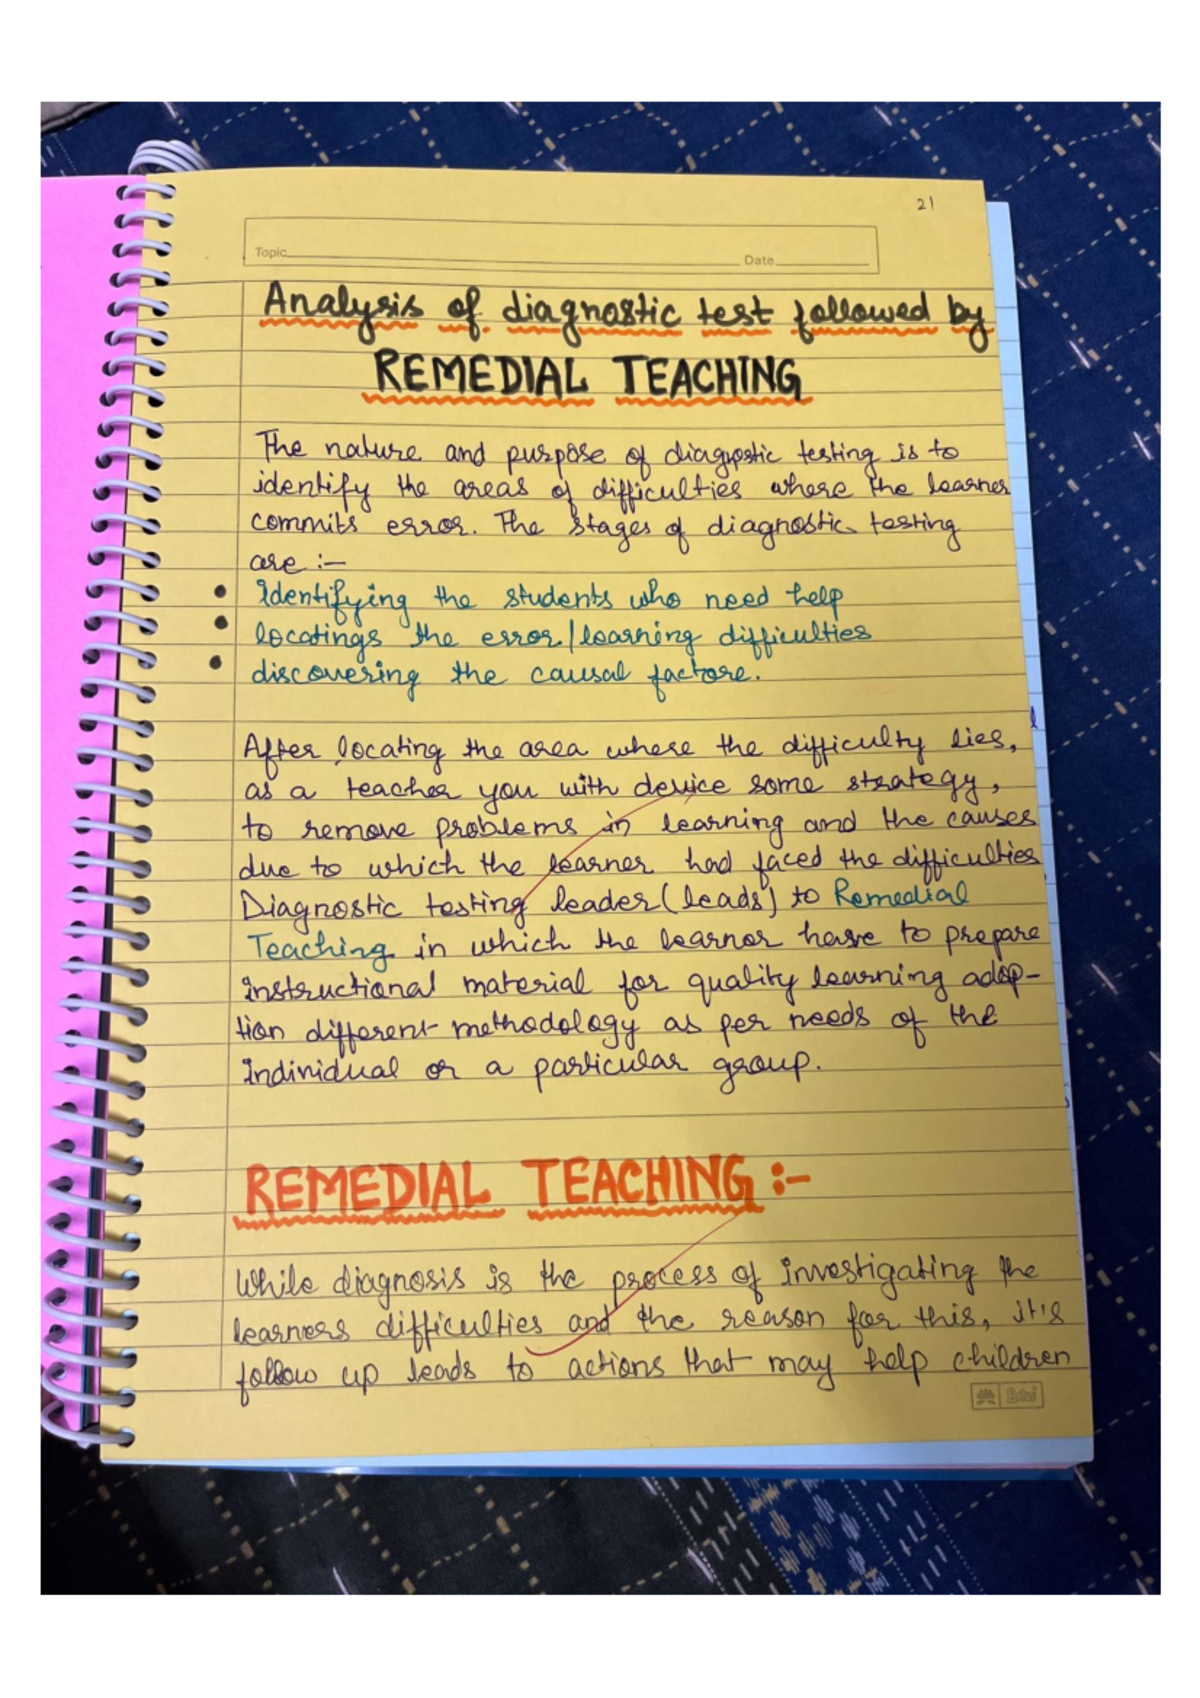 21
Topic
Date
Analysis of diagnostic test followed by
REMEDIAL TEACHING
The nature and purpose of diagnostic testing is to
identify the areas of difficulties where the learner
commits error. The stages of diagnostic testing
are :-
• Identifying the students who need help
• locatings the error/learning difficulties
• discovering the causal factore.
After locating the area where the difficulty lies,
as a teacher you with device some strategy,
to remove problems in learning and the causes
due to which the learner had faced the difficulties
Diagnostic testing leader (leads) to Remedial
Teaching in which the learner have to prepare
instructional material for quality learning adop-
tion different methodology as per needs of the
indinidual or a particular group.
REMEDIAL TEACHING :-
While diagnosis is the process of investigating the
learners difficulties and the reason for this, it's
follow up leads to actions that may help children